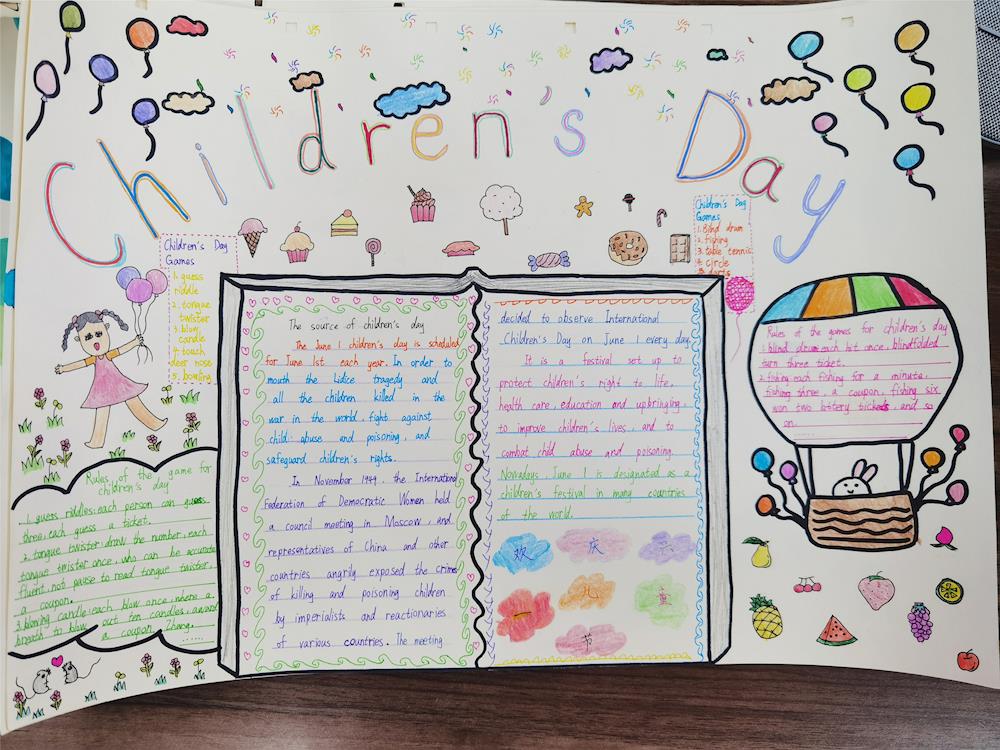 Children's Day
Children's Day
Games
1. guess
riddle
2. tongue
twister
3. blow
candle
4. touch
deer nose
5. bowling
Children's Day
Games
1. Blind drum
2. fishing
3. table tennis
4. circle
5. darts
The source of children's day
The June 1 children's day is scheduled
for June 1st each year. In order to
mouth the Lidice tragedy and
all the children killed in the
war in the world, fight against
child abuse and poisoning, and
safeguard children's rights.
In November 1949, the International
Federation of Democratic Women held
a council meeting in Moscow, and
representatives of China and other
countries angrily exposed the crime
of killing and poisoning children
by imperialists and reactionaries
of various countries. The meeting
decided to observe International
Children's Day on June 1 every day.
It is a festival set up to
protect children's right to life,
health care, education and upbringing,
to improve children's lives, and to
combat child abuse and poisoning.
Nowadays, June 1 is designated as a
children's festival in many countries
of the world.
欢 庆
六
一 儿 童
节
Rules of the games for children's day
1. blind drum each hit once, blindfolded
turn three ticket.
2. fishing each fishing for a minute,
fishing three, a coupon, fishing six
won two lottery tickets, and so
on.
Rules of the game for
children's day
1. guess riddles: each person can guess
three, each guess a ticket.
2. tongue twister: draw the number, each
tongue twister once, who can be accurate
fluent, not pause to read tongue twister,
a coupon.
3. blowing candle: each blow once, where a
breath to blow out ten candles, award
a coupon. Zhang
......